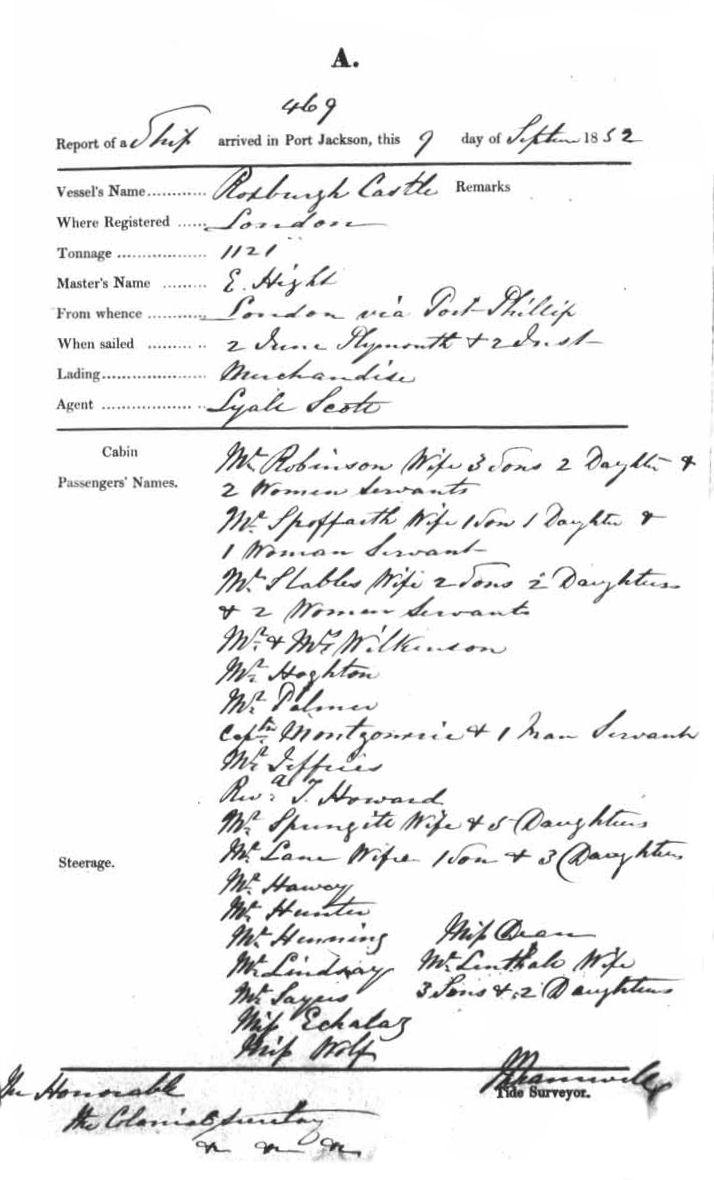 A.
469
Report of a Ship arrived in Port Jackson, this 9 day of Septem 1852
Vessel's Name............ Roxburgh Castle Remarks
Where Registered ...... London
Tonnage .................. 1121
Master's Name ......... E. Hight
From whence ............ London via Port Phillip
When sailed ......... .. 2 June Plymouth & 2 Inst
Lading..................... Merchandise
Agent .................. .. Lyall Scott
Cabin
Passengers' Names.
Mr. Robinson Wife 3 Sons 2 Daughter &
2 Women Servants
Mr. Spoffarth Wife 1 Son 1 Daughter &
1 Woman Servant
Mr. Stables Wife 2 Sons 2 Daughters
& 2 Women Servants
Mr. & Mrs Wilkinson
Mr. Hoghton
Mr. Palmer
Captn. Montgomerie & 1 Man Servant
Mr. Jeffries
Revd. T. Howard
Mr. Wife & 5 Daughters
Steerage.
Mr. Lane Wife 1 Son & 3 Daughters
Mr.
Mr. Hunter
Mr. Henning Miss Dean
Mr. Lindsay Mr. Lenthall Wife
Mr. Sayers 3 Sons & 2 Daughters
Miss Echalaz
Miss Wolf
Tide Surveyor.
The Honorable
the Colonial Secretary